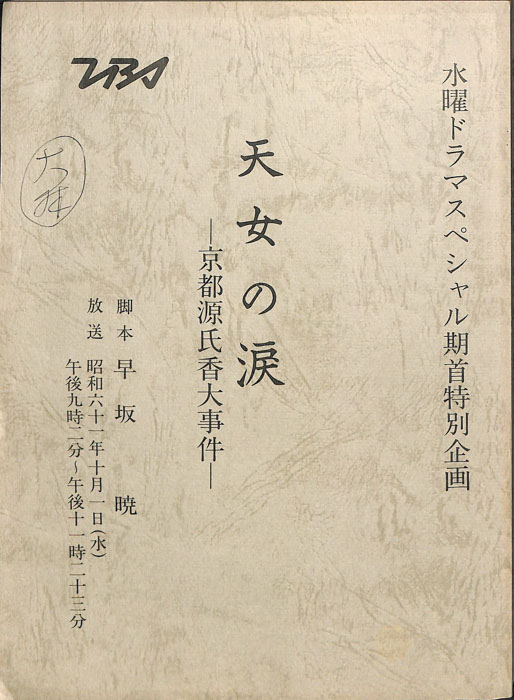 水曜ドラマスペシャル期首特別企画
TBS
天女の涙
―京都源氏香大事件―
脚本 早坂 暁
放送 昭和六十一年十月一日(水)
午後九時二分～午後十一時二十三分